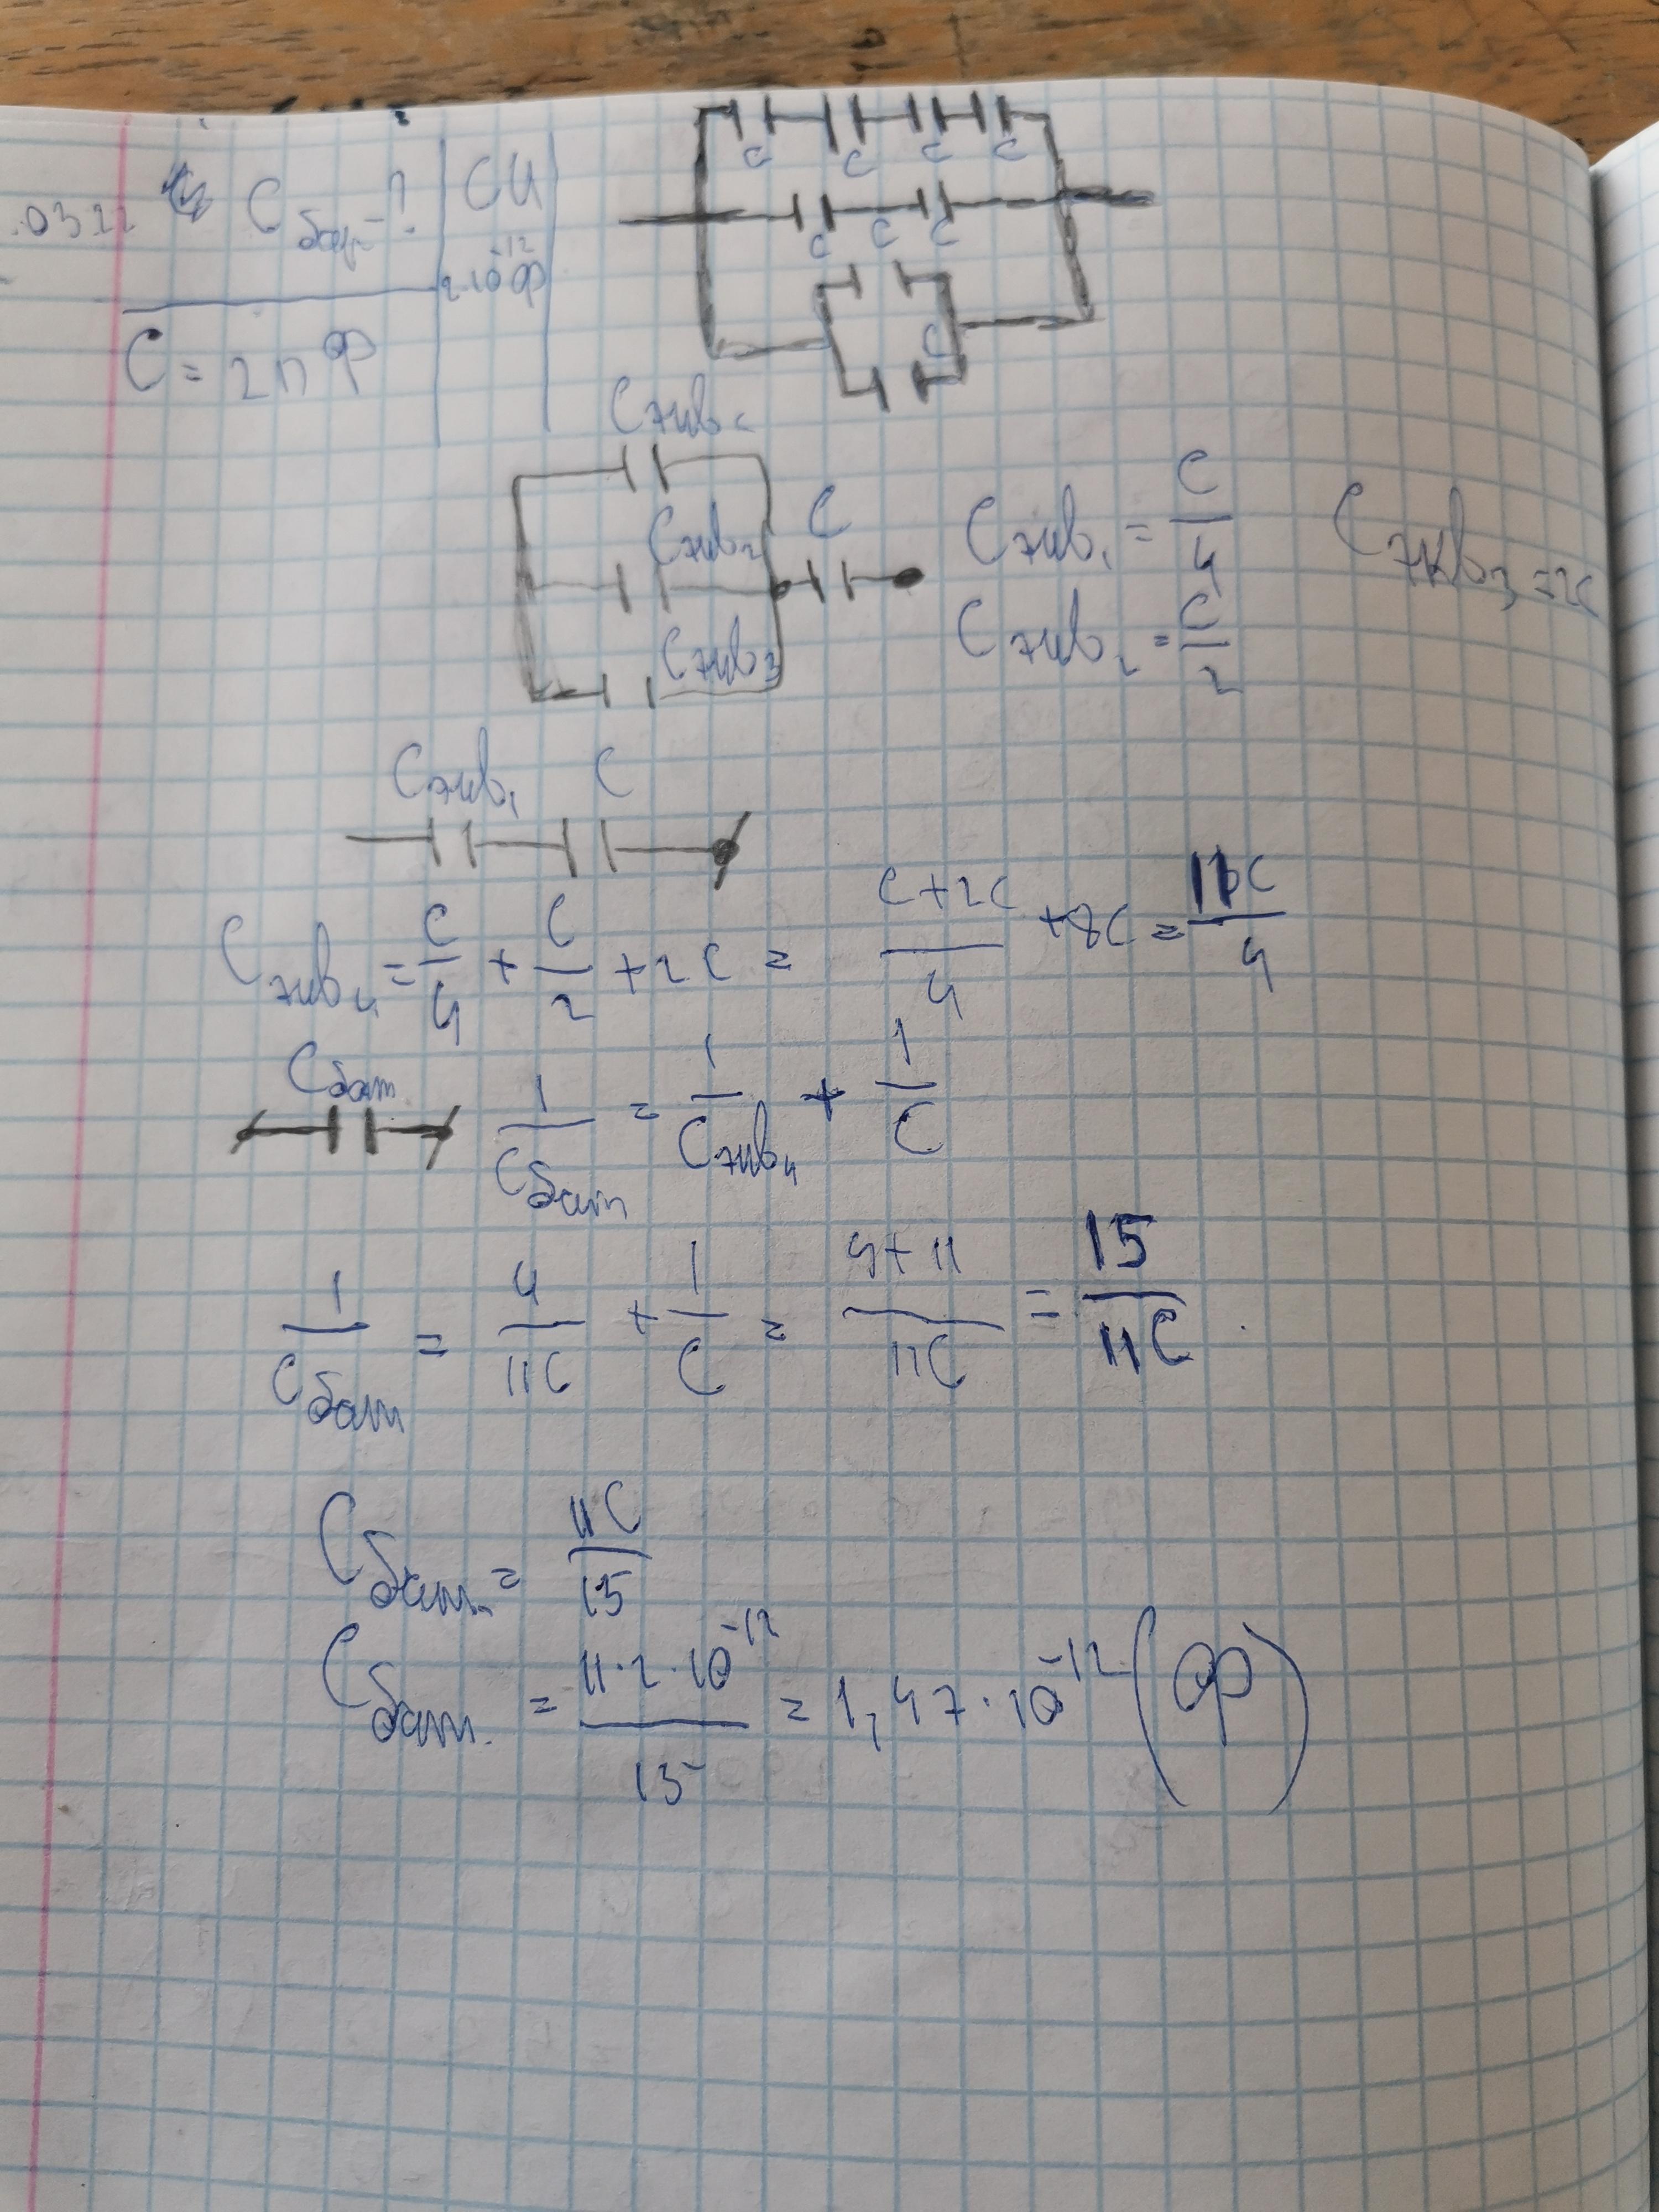 .03.22 C бат - ? СИ
2·10⁻¹² Ф
C = 2пФ
C C C C
C C C
C
C экв₁
C экв₂ C
C экв₃
C экв₁ = C/4 C экв₃ = 2C
C экв₂ = C/2
C экв₁ C
C экв₄ = C/4 + C/2 + 2C = C+2C/4 + 8C = 11C/4
C бат 1/C бат = 1/C экв₄ + 1/C
1/C бат = 4/11C + 1/C = 4+11/11C = 15/11C
C бат = 11C/15
C бат = 11·2·10⁻¹²/15 = 1,47·10⁻¹² (Ф)